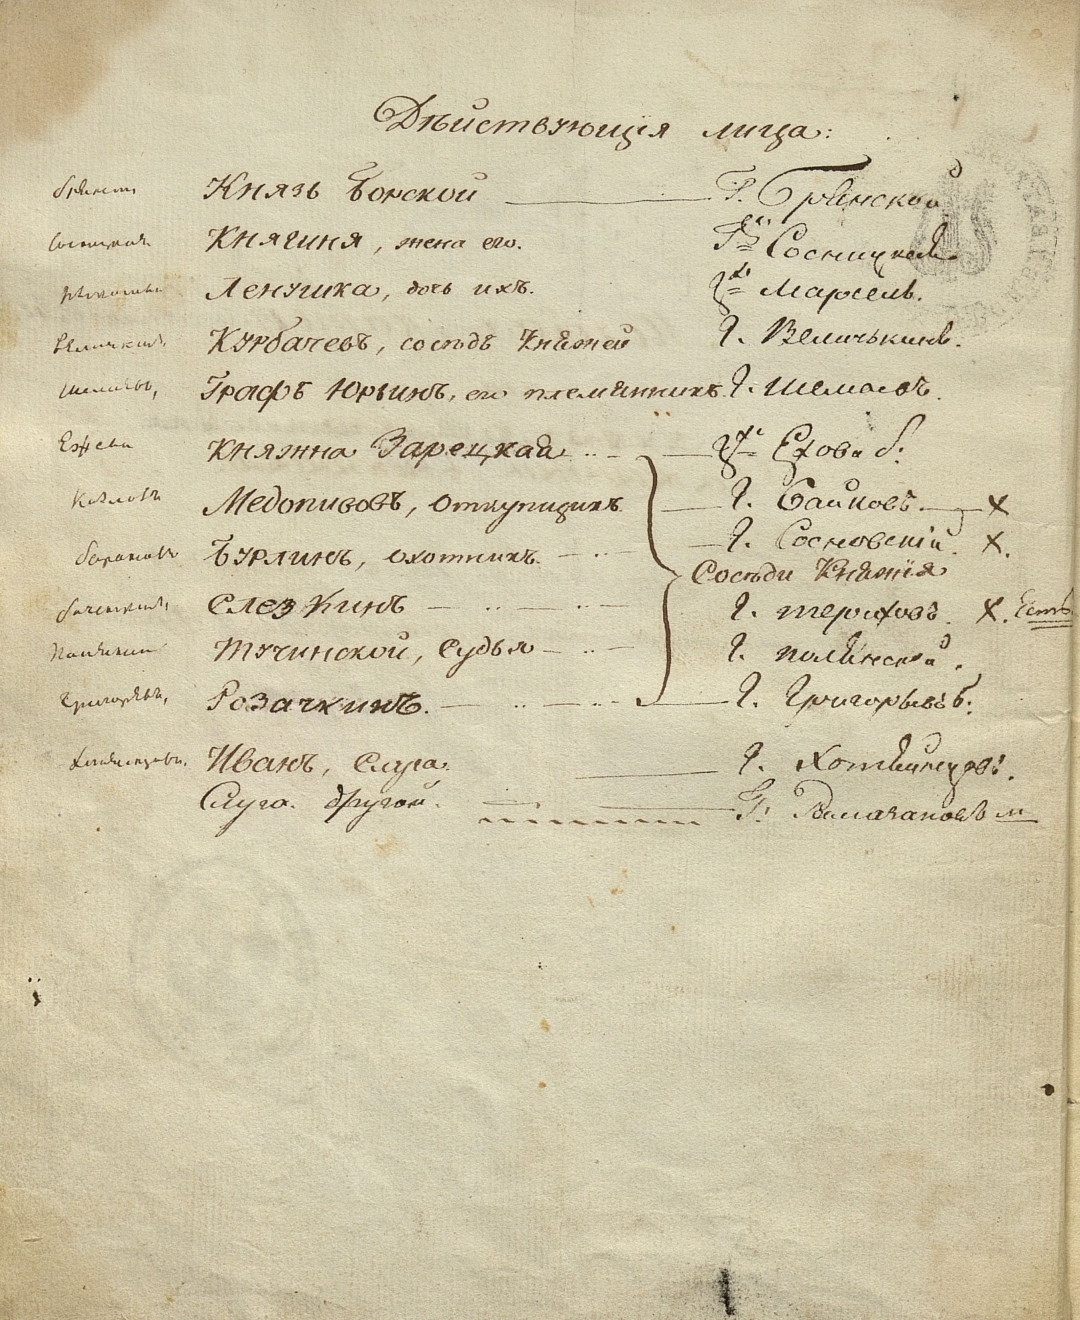 Дѣйствующія лица:
Брянски, Князь Борской Г. Брянской
Сосницкая Княгиня, жена его. Г-жа Сосницкая
Ленушка, дочь ихъ. Г-жа Марсель.
Величкинъ, Курбачевъ, сосѣдъ Княжей Г. Величькинъ.
Шемаевъ, Графъ Юрьинъ, его племянникъ Г. Шемаевъ.
Ежева Княжна Зарецкая Г-жа Ехова б:
Козловъ Медописовъ, Откупщикъ Г. Байковъ. X
Барановъ Бурлинъ, охотникъ. Г. Сосновскій. X.
Сосѣди Княжія
Слезкинъ Г. Териховъ. X. Есть
Полянский Тучинской, Судья Г. Полянской.
Григорьевъ, Розачкинъ. Г. Григорьевъ б:
Хотяинцовъ. Иванъ, Слуга. Г. Хотяинцовъ.
Слуга другой. Г. Рамазановъ м